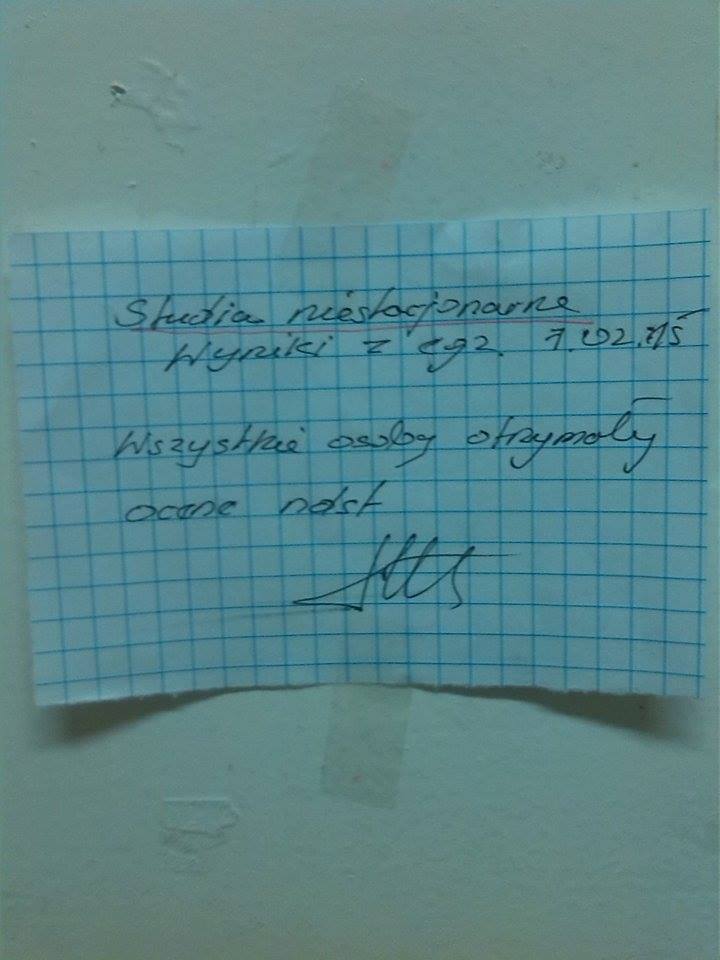 Studia niestacjonarne
Wyniki z egz. 7.02.15
Wszystkie osoby otrzymały
ocenę ndst